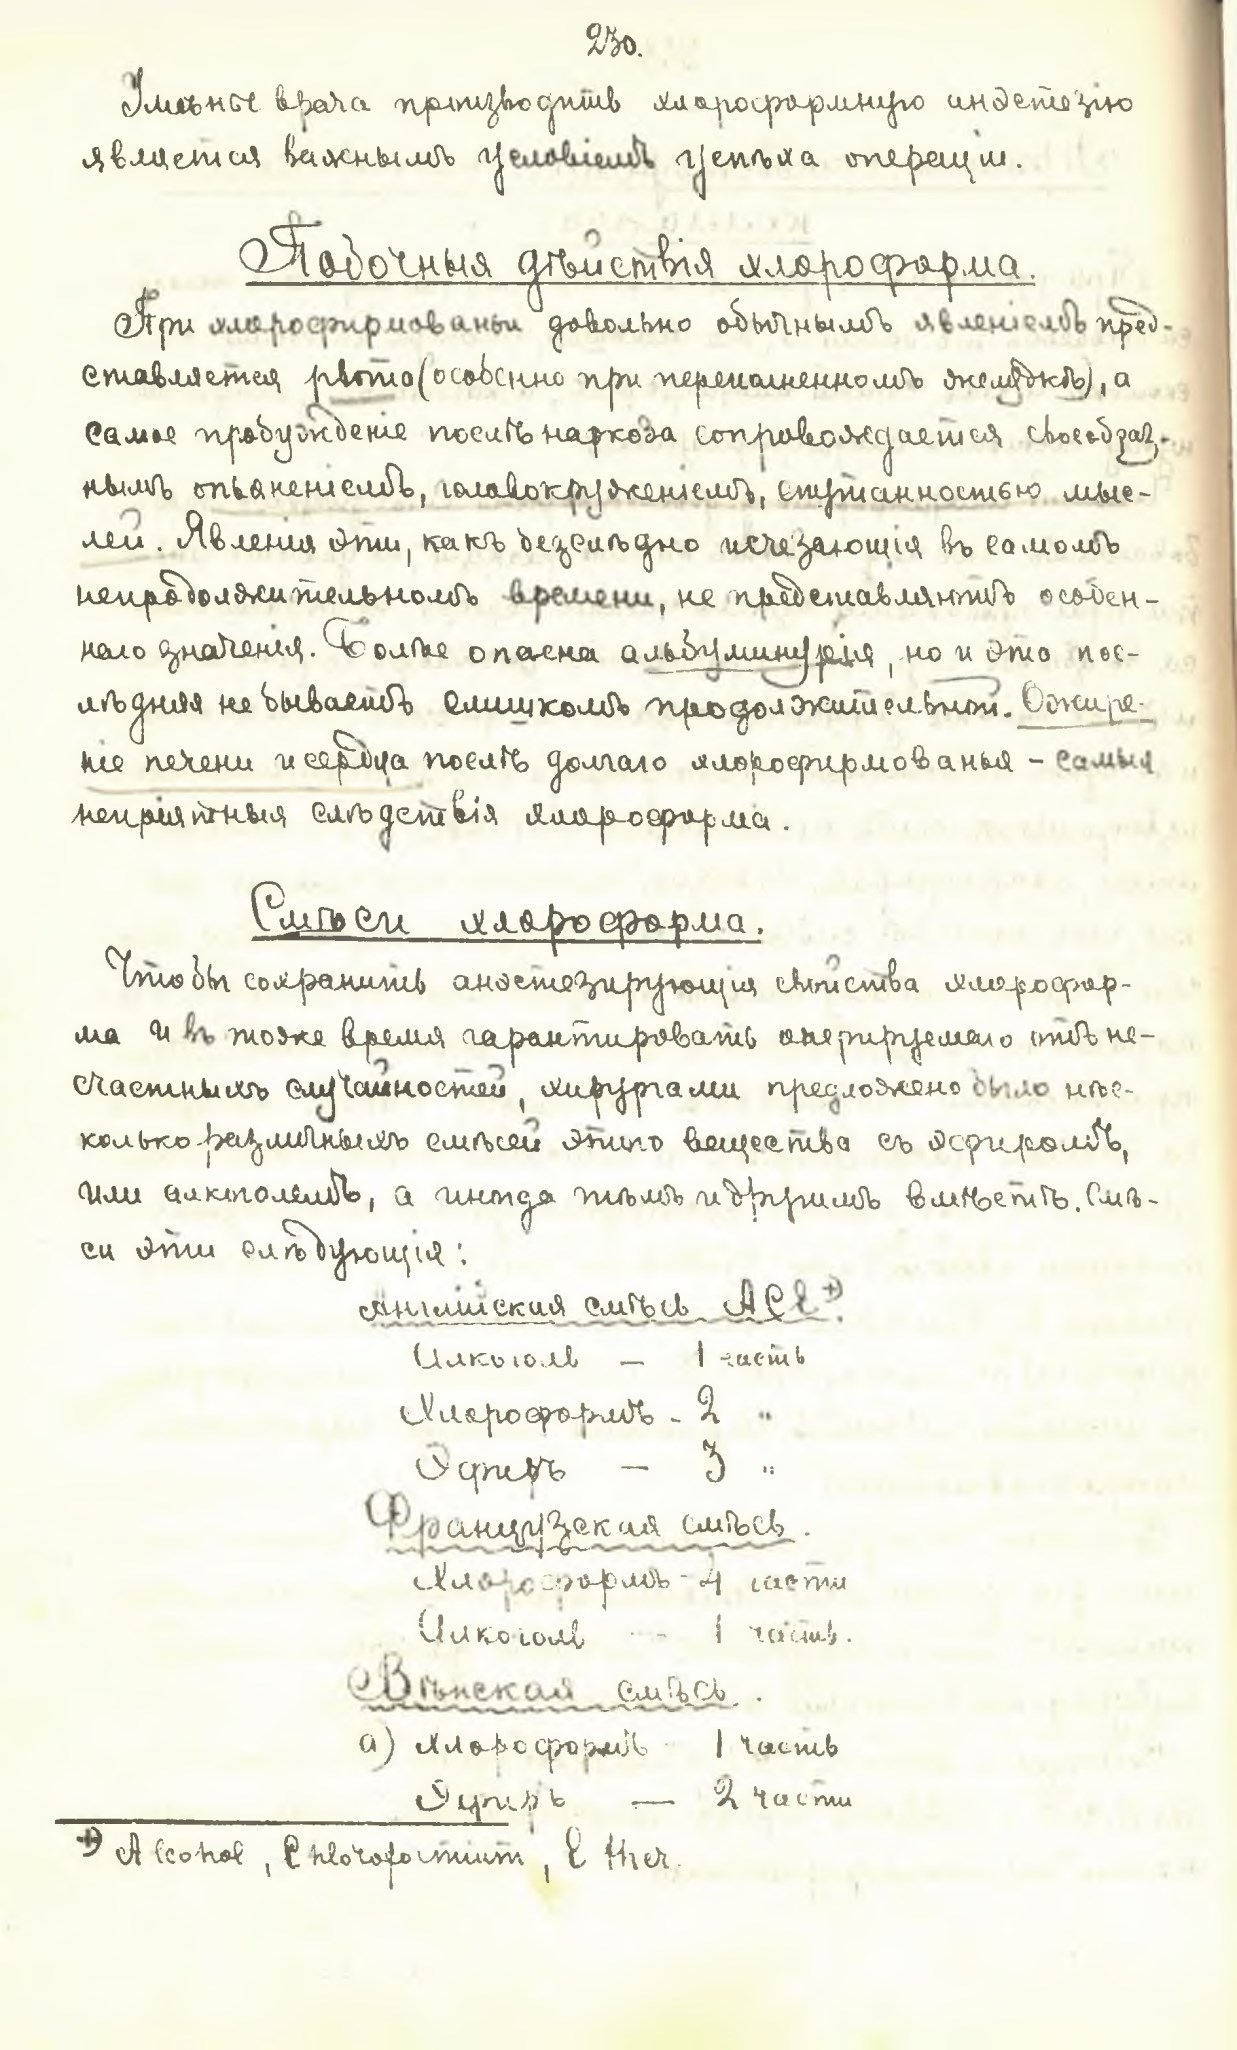 230.
Умѣнье врача производить хлороформную анэстезію
является важнымъ условіемъ успѣха операціи.
Побочныя дѣйствія хлороформа.
При хлороформированьи довольно обычнымъ явленіемъ пред-
ставляется рвота (особенно при переполненномъ желудкѣ), а
самое пробужденіе послѣ наркоза сопровождается своеобраз-
нымъ опьяненіемъ, головокруженіемъ, спутанностью мыс-
лей. Явленія эти, какъ безслѣдно исчезающія въ самомъ
непродолжительномъ времени, не представляютъ особен-
наго значенія. Болѣе опасна альбуминурія, но и эта пос-
лѣдняя не бываетъ слишкомъ продолжительной. Ожире-
ніе печени и сердца послѣ долгаго хлороформированья – самыя
непріятныя слѣдствія хлороформа.
Смѣси хлороформа.
Чтобы сохранить анэстезирующія свойства хлорофор-
ма и въ тоже время гарантировать оперируемаго отъ не-
счастныхъ случайностей, хирургами предложено было нѣс-
колько различныхъ смѣсей этого вещества съ эфиромъ,
или алкоголемъ, а иногда тѣмъ и другимъ вмѣстѣ. Смѣ-
си эти слѣдующія:
Англійская смѣсь ACE +).
Алкоголь – 1 часть
Хлороформъ - 2 "
Эфиръ – 3 "
Французская смѣсь.
Хлороформъ - 4 части
Алкоголь – 1 часть.
Вѣнская смѣсь.
а) хлороформъ - 1 часть
Эфиръ – 2 части
+) Alcohol, Chloroformium, Ether.